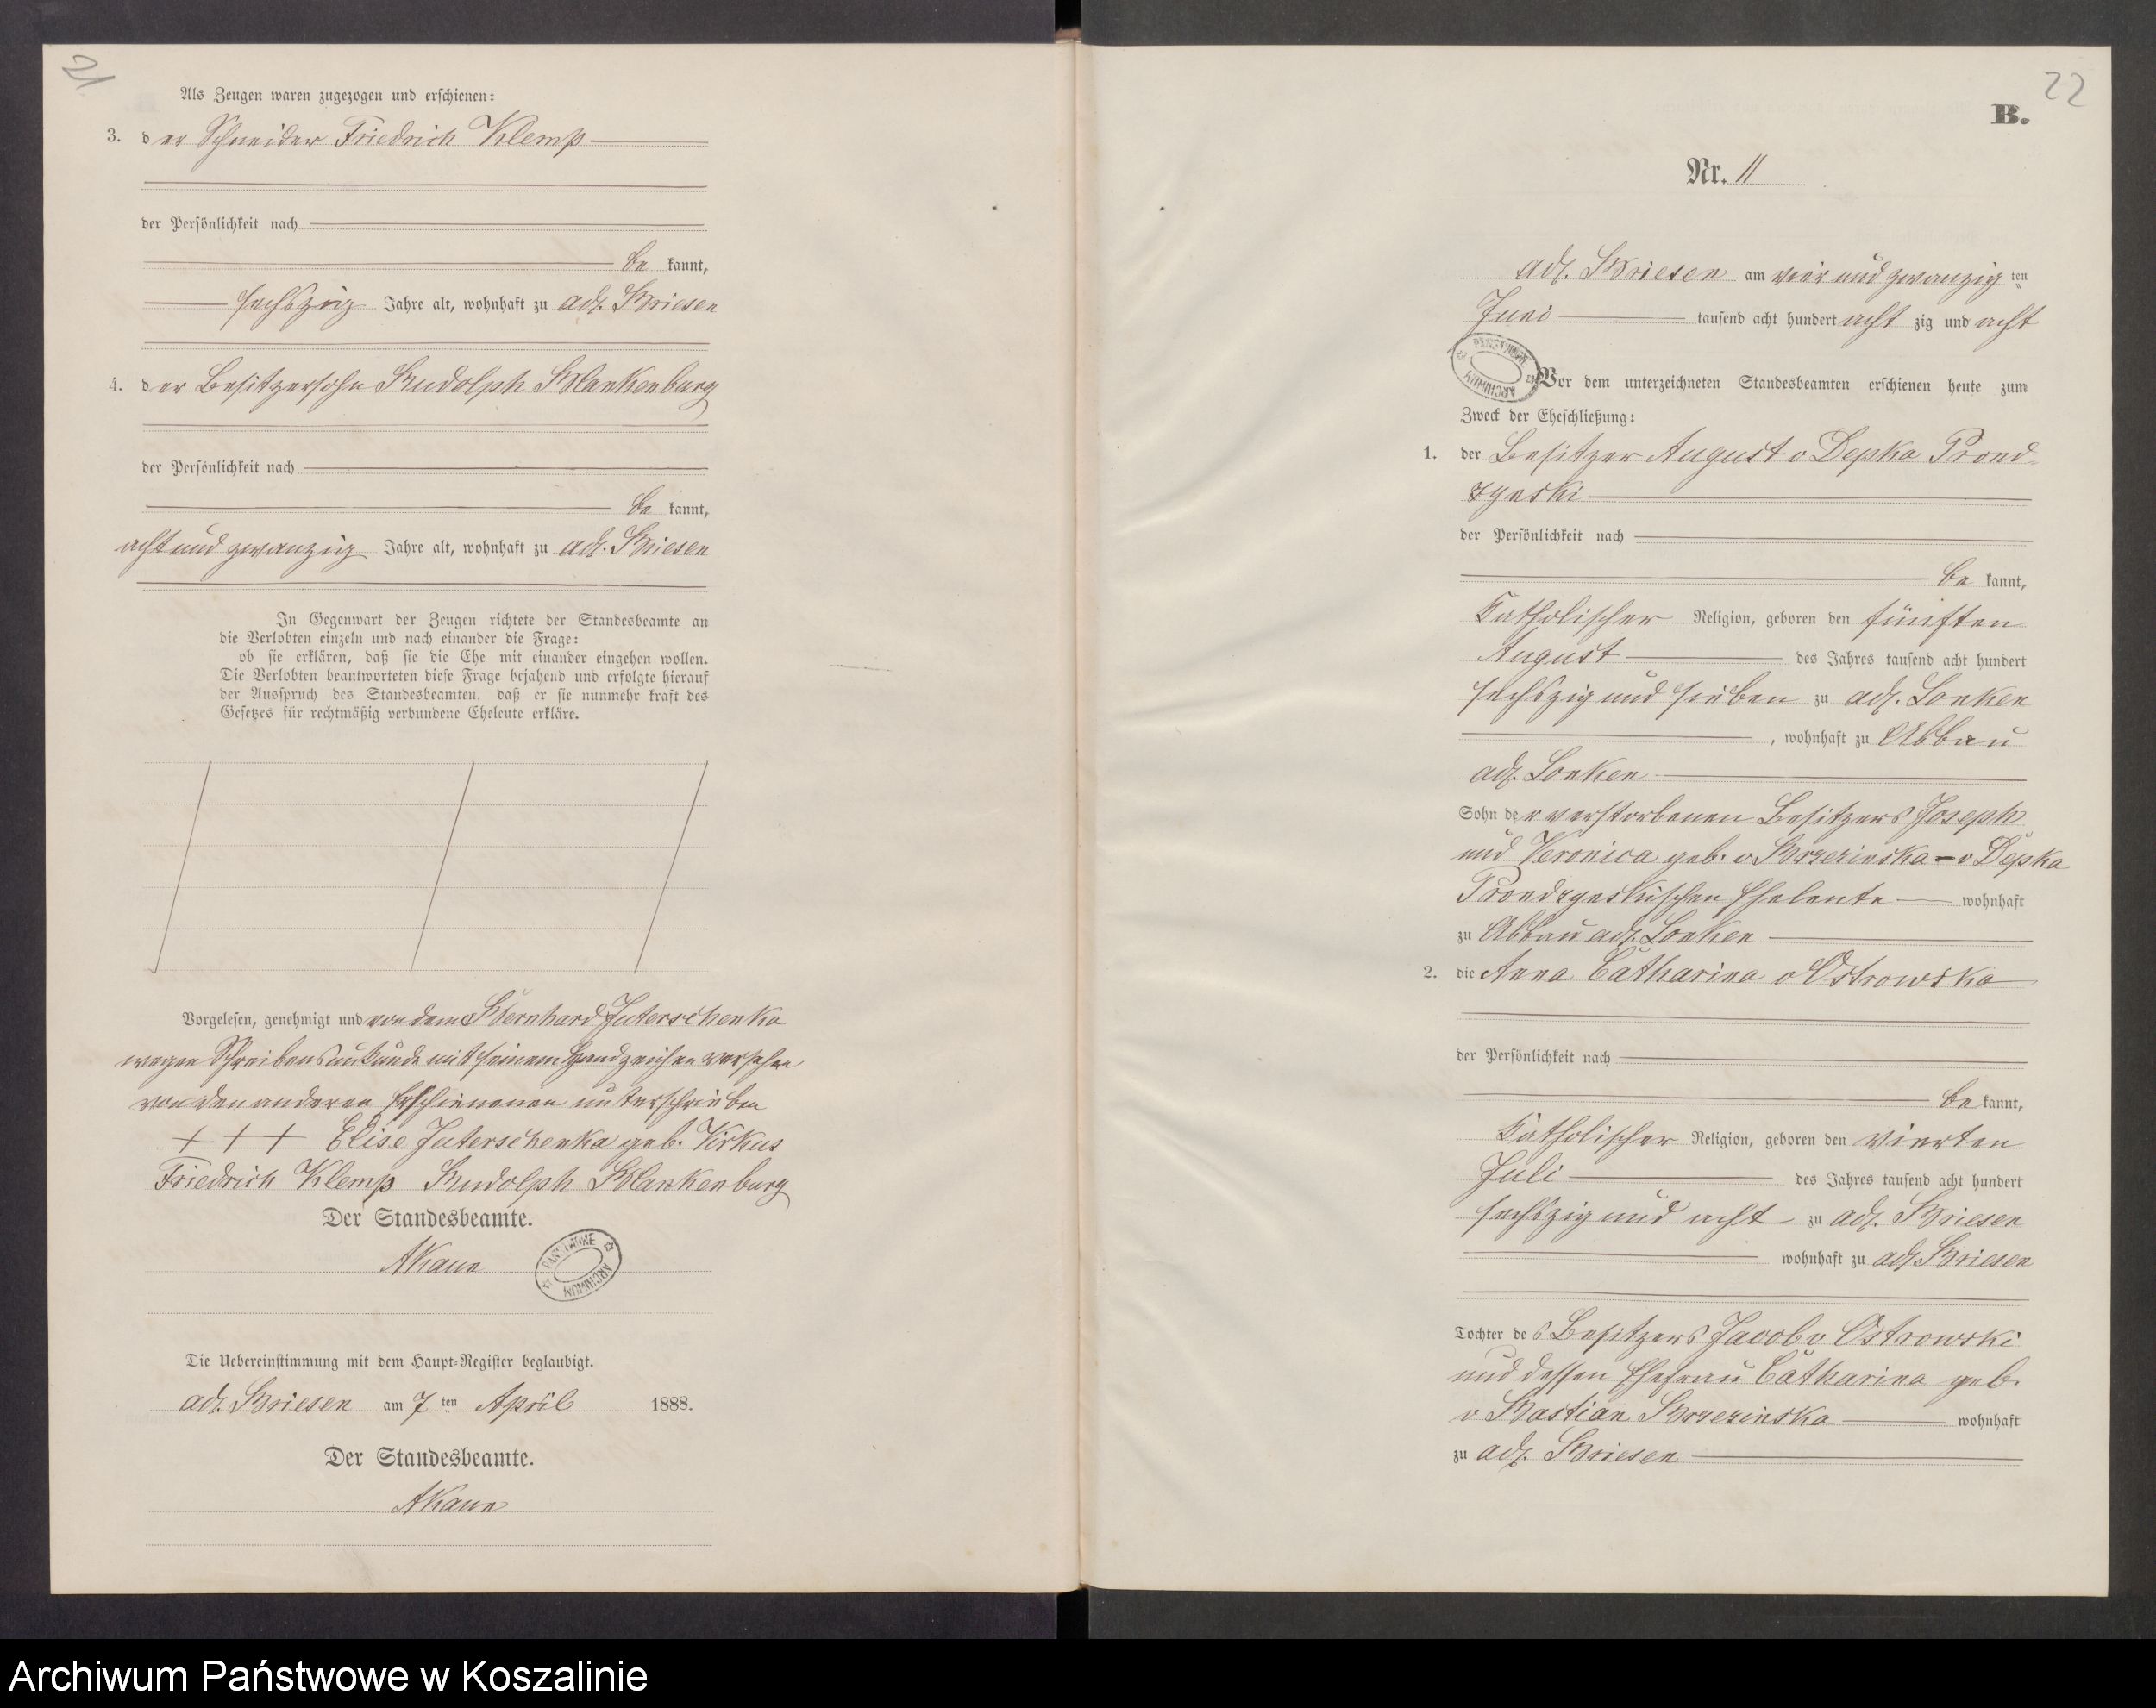 21
Als Zeugen waren zugezogen und erschienen:
3. der Schneider Friedrich Klemp
der Persönlichkeit nach
be kannt,
sechszig Jahre alt, wohnhaft zu adl. Briesen
4. der Besitzersohn Rudolph Blankenburg
der Persönlichkeit nach
be kannt,
acht und zwanzig Jahre alt, wohnhaft zu adl. Briesen
In Gegenwart der Zeugen richtete der Standesbeamte an
die Verlobten einzeln und nach einander die Frage:
ob sie erklären, daß sie die Ehe mit einander eingehen wollen.
Die Verlobten beantworteten diese Frage bejahend und erfolgte hierauf
der Ausspruch des Standesbeamten, daß er sie nunmehr kraft des
Gesetzes für rechtmäßig verbundene Eheleute erkläre.
Vorgelesen, genehmigt und von dem Bernhard Juterschenka
wegen Schreibensunkunde mit seinem Handzeichen versehen
von den anderen Erschienenen unterschrieben
+ + + Elise Juterschenka geb. Kirkus
Friedrich Klemp Rudolph Blankenburg
Der Standesbeamte.
AKaun
PAŃSTWOWE ARCHIWUM
Die Uebereinstimmung mit dem Haupt-Register beglaubigt.
adl. Briesen am 7 ten April 1888.
Der Standesbeamte.
AKaun
22
B.
Nr. 11
adl. Briesen am vier und zwanzig ten
Juni tausend acht hundert acht zig und acht
PAŃSTWOWE ARCHIWUM
Vor dem unterzeichneten Standesbeamten erschienen heute zum
Zweck der Eheschließung:
1. der Besitzer August v Depka Prond-
zynski
der Persönlichkeit nach
be kannt,
Katholischer Religion, geboren den fünften
August des Jahres tausend acht hundert
sechszig und sieben zu adl. Lonken
, wohnhaft zu Abbau
adl. Lonken
Sohn der verstorbenen Besitzers Joseph
und Veronica geb. v Brzezinska - v Depka
Prondzynskischen Eheleute wohnhaft
zu Abbau adl. Lonken
2. die Anna Catharina v Ostrowska
der Persönlichkeit nach
be kannt,
Katholischer Religion, geboren den vierten
Juli des Jahres tausend acht hundert
sechszig und acht zu adl. Briesen
wohnhaft zu adl. Briesen
Tochter des Besitzers Jacob v Ostrowski
und dessen Ehefrau Catharina geb.
v Bastian Brzezinska wohnhaft
zu adl. Briesen
Archiwum Państwowe w Koszalinie